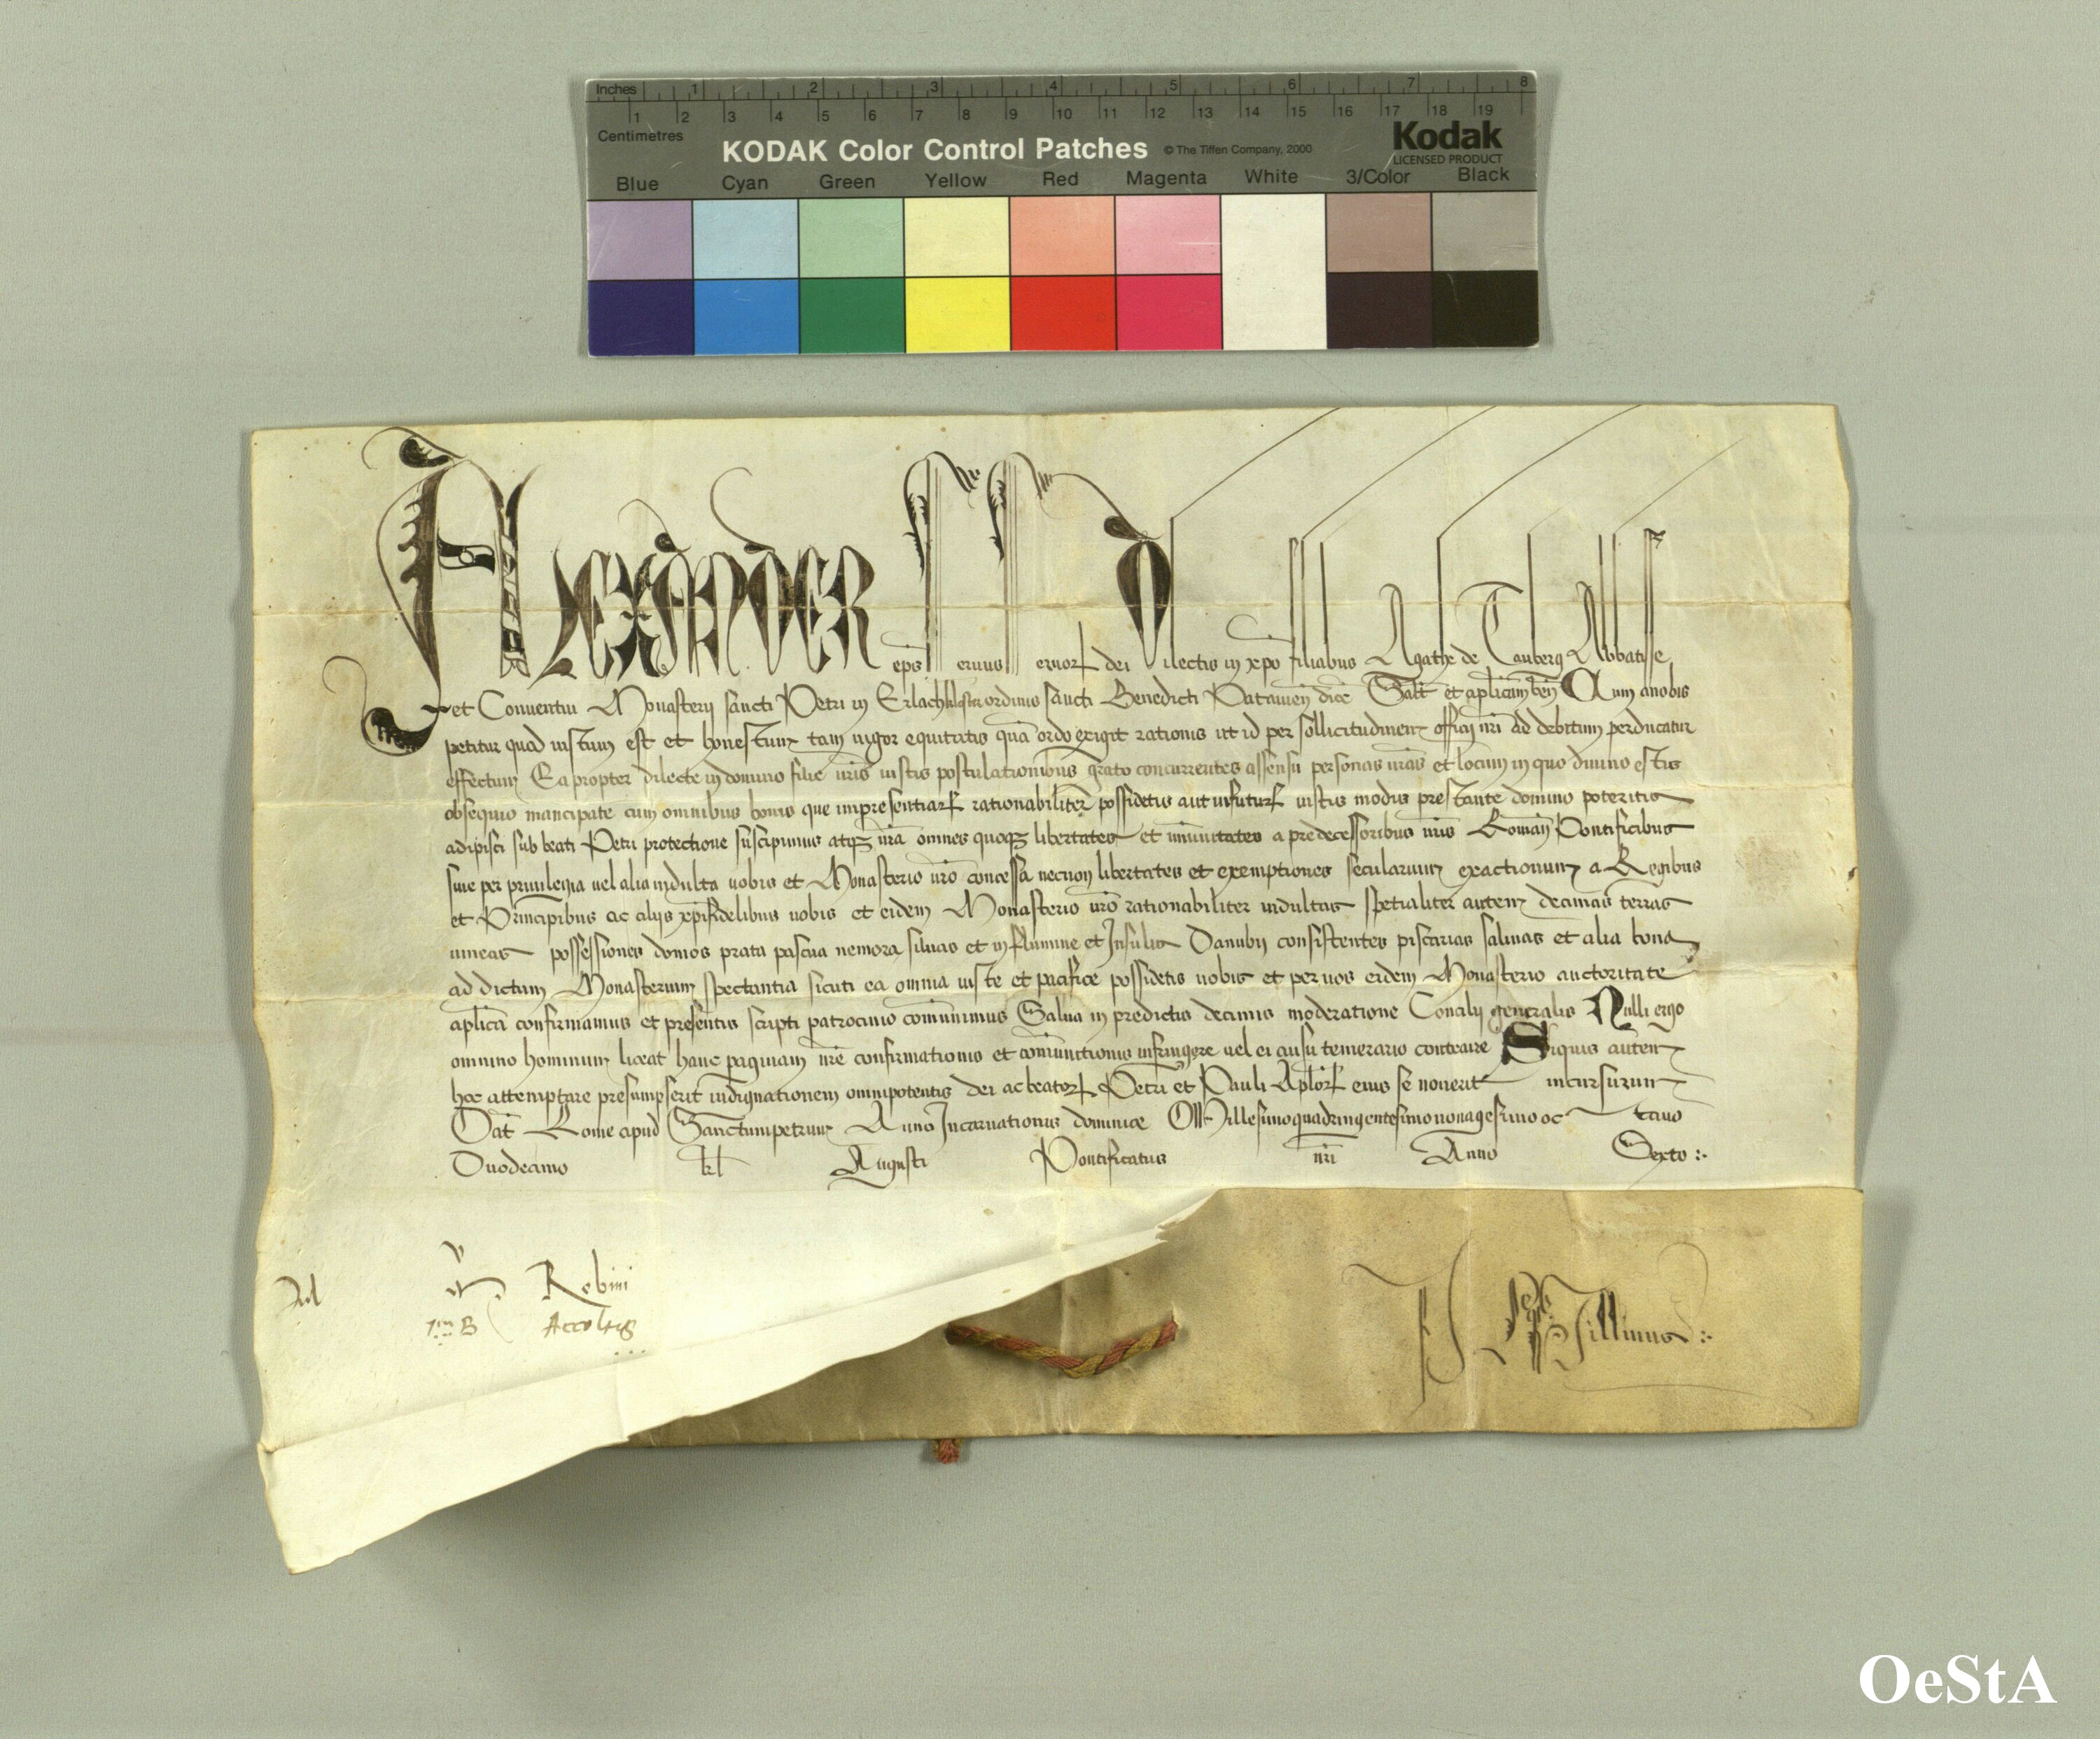 Inches 1 2 3 4 5 6 7 8
1 2 3 4 5 6 7 8 9 10 11 12 13 14 15 16 17 18 19
Centimetres
KODAK Color Control Patches © The Tiffen Company, 2000 Kodak
LICENSED PRODUCT
Blue Cyan Green Yellow Red Magenta White 3/Color Black
Alexander ep̄s seruus seruor dei Dilectis in xpo filiabus Agathe de Tanberg Abbatisse
et Conuentui Monasterij sancti Petri in Erlachkloster ordinis sancti Benedicti Patauien̄ dioc̄ Salt̄ et aplicam ben̄ Cum anobis
petitur quod iustum est et honestum tam uigor equitatis quā ordo exigit rationis ut id per sollicitudinem officij nr̄i ad debitum perducatur
effectum Eapropter dilecte in domino filie ur̄is iustis postulationibus grato concurrentes assensu personas ur̄as et locum in quo diuino estis
obsequio mancipate cum omnibus bonis que impresentiar rationabiliter possidetis aut infutur iustis modis prestante domino poteritis
adipisci sub beati Petri protectione suscipimus atq nr̄a omnes quoq libertates et im̄unitates a predecessoribus nr̄is Roman̄ Pontificibus
siue per priuilegia uel alia indulta uobis et Monasterio ur̄o concessa necnon libertates et exemptiones secularium exactionum a Regibus
et Principibus ac alijs xp̄ifidelibus uobis et eidem Monasterio ur̄o rationabiliter indultas spetialiter autem decimas terras
uineas possessiones domos prata pascua nemora siluas et in flumine et Insulis Danubij consistentes piscarias salinas et alia bona
ad dictum Monasterium spectantia sicuti ea omnia iuste et pacifice possidetis uobis et per uos eidem Monasterio auctoritate
aplica confirmamus et presentis scripti patrocinio com̄unimus Salua in predictis decimis moderatione Concilij generalis Nulli ergo
omnino hominum liceat hanc paginam nr̄e confirmationis et com̄unctionis infringere uel ei ausu temerario contraire Siquis autem
hoc attemptare presumpserit indignationem omnipotentis dei ac beator Petri et Pauli Aplor eius se nouerit incursurum
Dat̄ Rome apud Sanctumpetrum Anno Incarnationis dominice Millesimoquadringentesimononagesimo oc tauo
Duodecimo kl Augusti Pontificatus nr̄i Anno Sexto :.
Robini
B Accoltus
Tillinus :.
OeStA